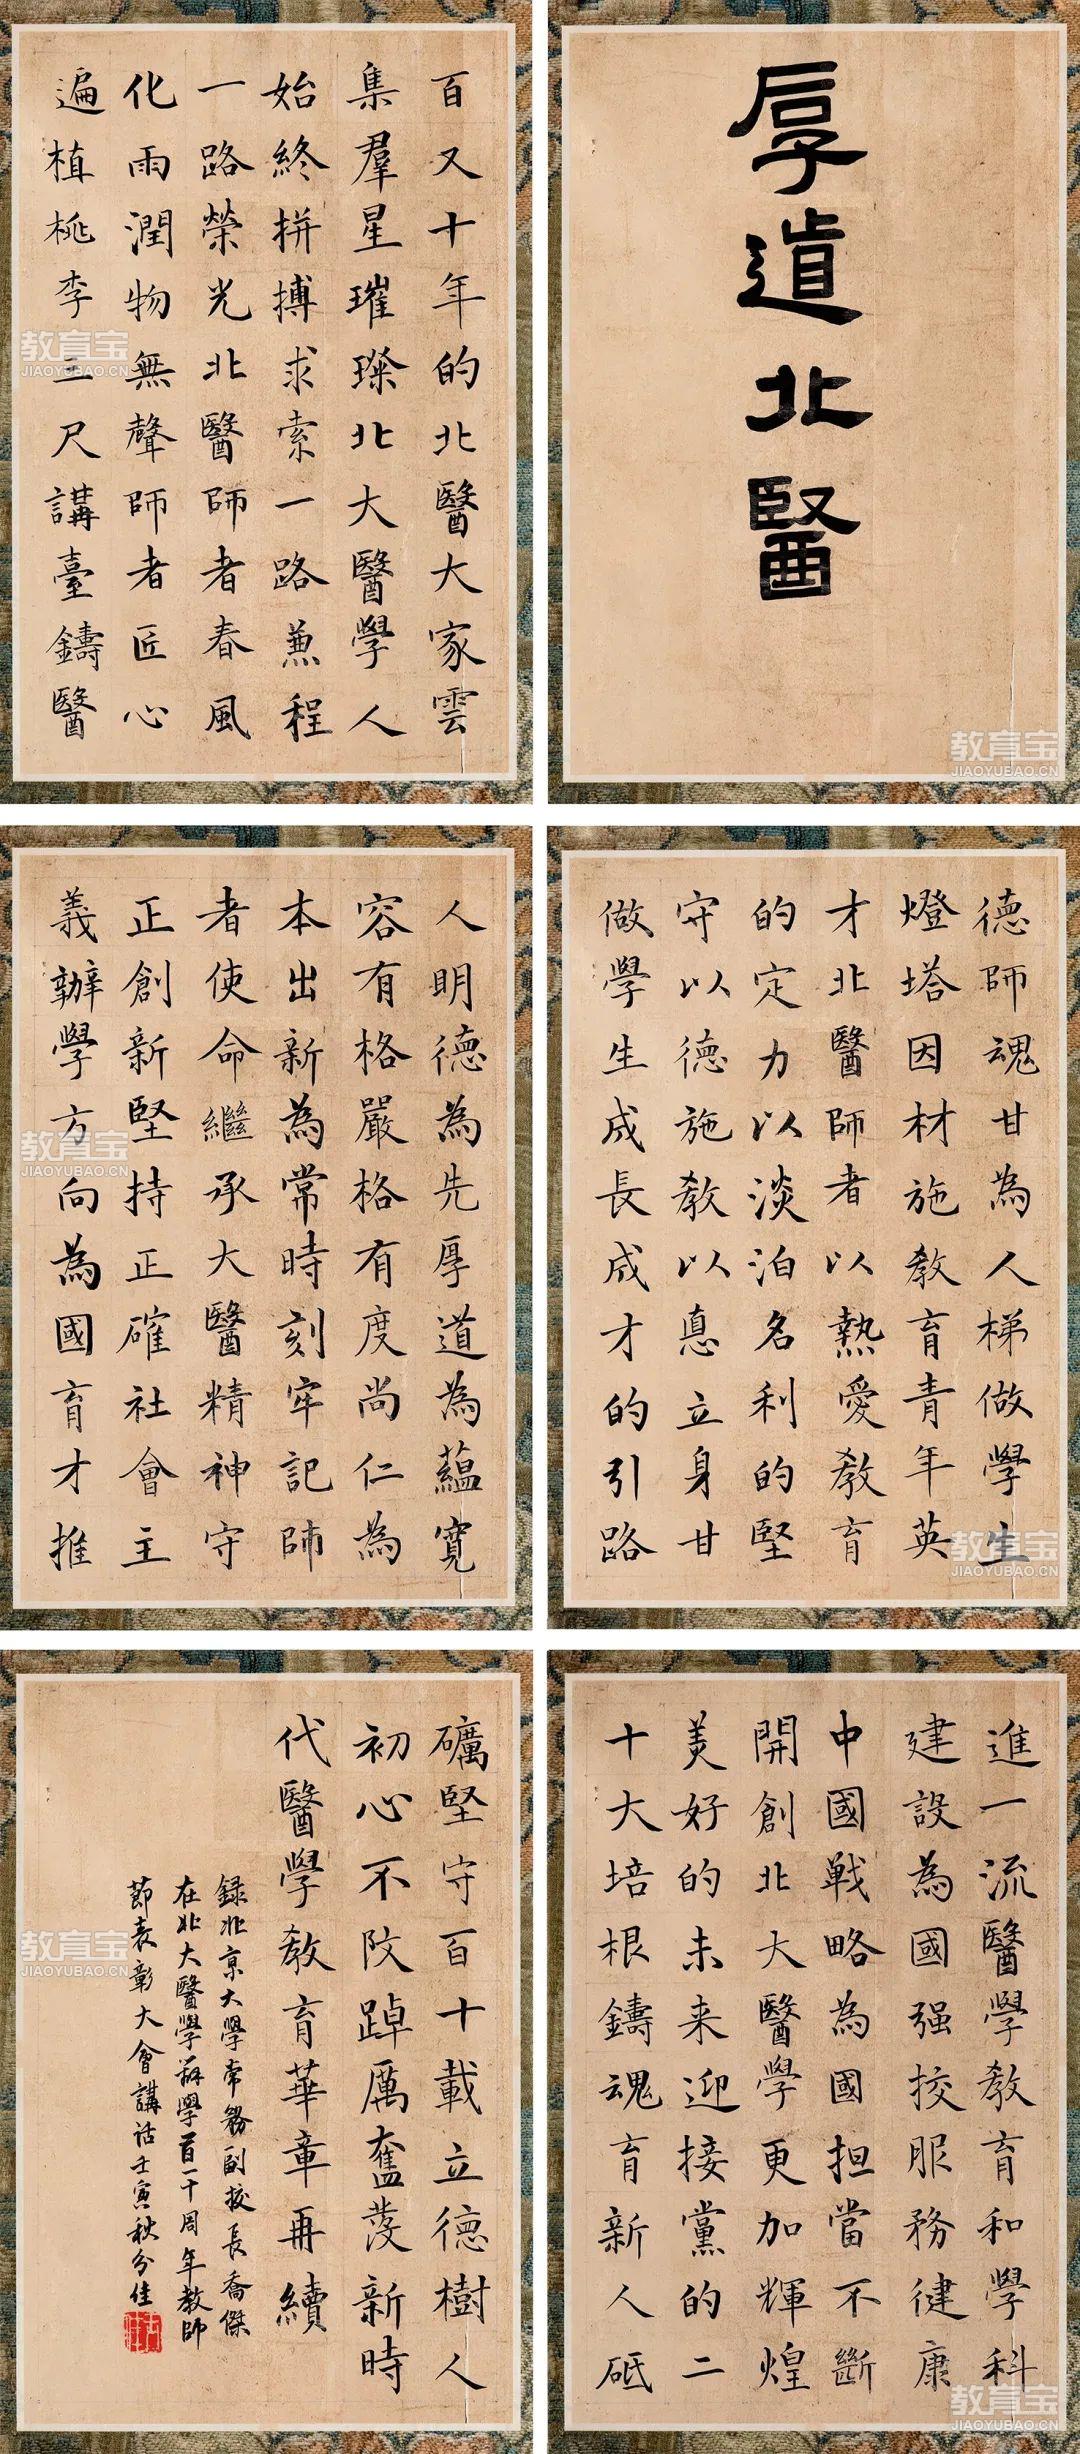 厚道北醫
百又十年的北醫大家雲
集羣星璀璨北大醫學人
始終拼搏求索一路兼程
一路榮光北醫師者春風
化雨潤物無聲師者匠心
遍植桃李三尺講臺鑄醫
德師魂甘為人梯做學生
燈塔因材施教育青年英
才北醫師者以熱愛教育
的定力以淡泊名利的堅
守以德施教以悳立身甘
做學生成長成才的引路
人明德為先厚道為蘊寬
容有格嚴格有度尚仁為
本出新為常時刻牢記師
者使命繼承大醫精神守
正創新堅持正確社會主
義辦學方向為國育才推
進一流醫學教育和學科
建設為國强校服務健康
中國戰略為國担當不斷
開創北大醫學更加輝煌
美好的未来迎接黨的二
十大培根鑄魂育新人砥
礪堅守百十載立德樹人
初心不改踔厲奮發新時
代醫學教育華章再續
錄北京大學常務副校長喬傑
在北大醫學辦學百一十周年教師
節表彰大會講話壬寅秋分佳
教育宝
JIAOYUBAO.CN
教育宝
JIAOYUBAO.CN
教育宝
JIAOYUBAO.CN
教育宝
JIAOYUBAO.CN
教育宝
JIAOYUBAO.CN
教育宝
JIAOYUBAO.CN